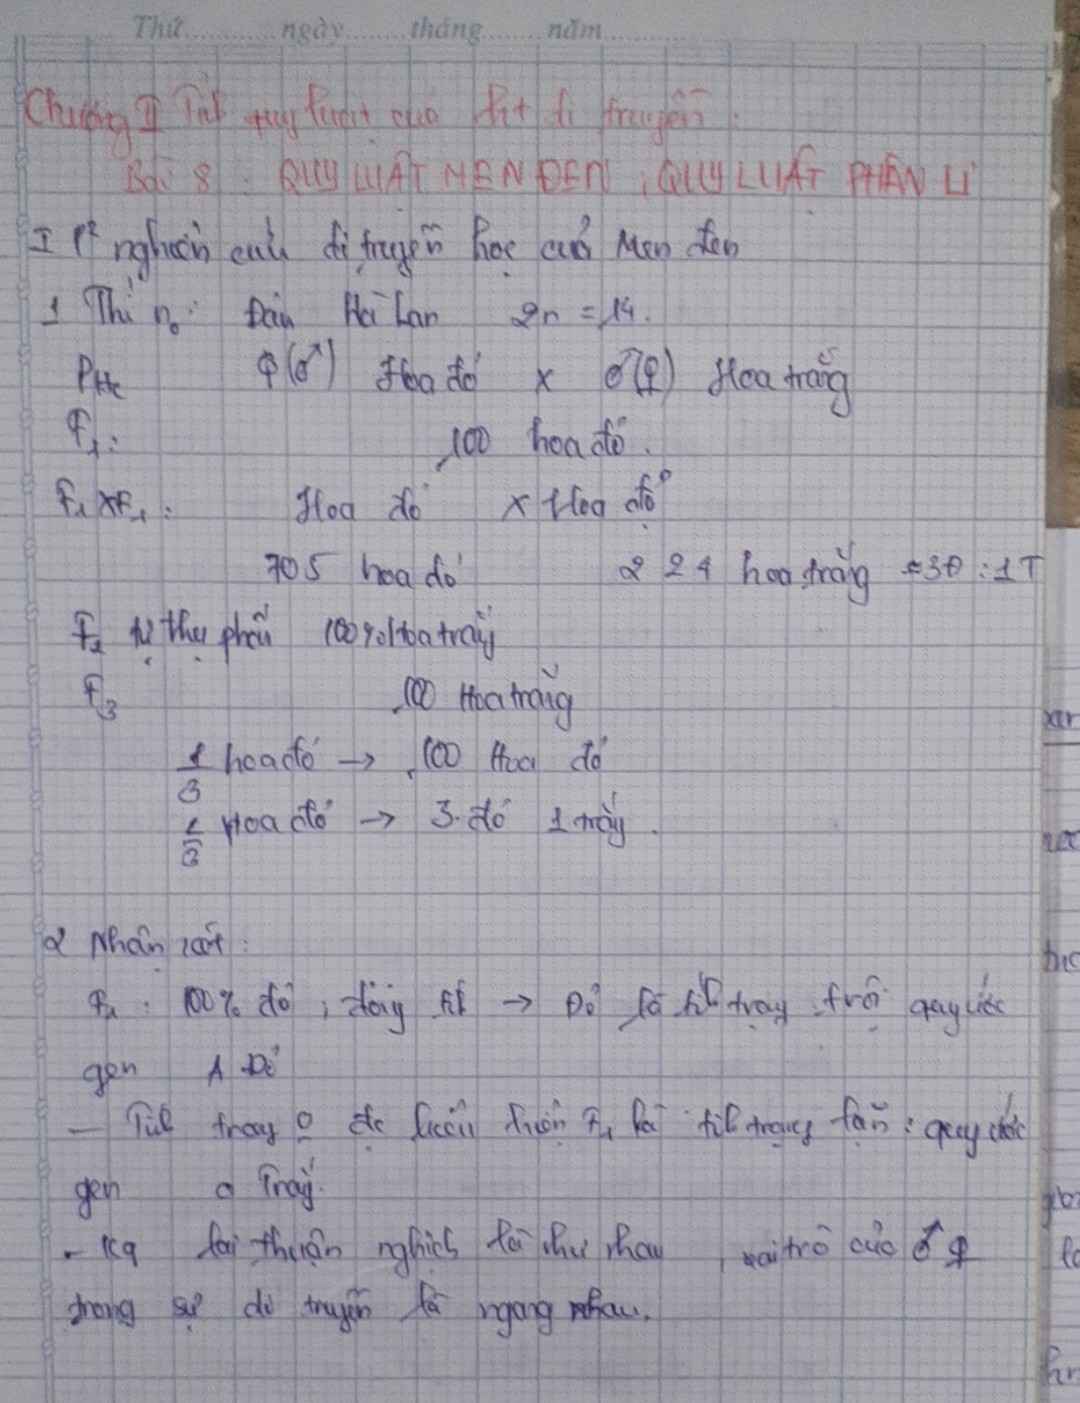 Thứ ngày tháng năm
Chương II Tính quy luật của ht di truyền
Bài 8: QUY LUẬT MENĐEN, QUY LUẬT PHÂN LI
I P² nghiên cứu di truyền học của Men đen
1 Thí no: Đậu Hà Lan 2n = 14.
Pt/c ♀(♂) Hoa đỏ x ♂(♀) Hoa trắng
F1: 100 hoa đỏ.
F1 x F1: Hoa đỏ x Hoa đỏ
705 hoa đỏ 224 hoa trắng ≈ 3Đ : 1T
F2 tự thụ phấn 100% Hoa trắng
F3 100 Hoa trắng
1/3 hoa đỏ → 100 Hoa đỏ
2/3 Hoa đỏ → 3 đỏ 1 trắng.
2 Nhận xét:
F1: 100% đỏ, đồng → Đỏ là tính trạng trội quy ước
gen A Đỏ
– Tính trạng o đc biểu hiện F1 là tính trạng lặn: quy ước
gen a Trắng.
- Kq lai thuận nghịch là như nhau, vai trò của ♂ ♀
trong sự di truyền là ngang nhau.